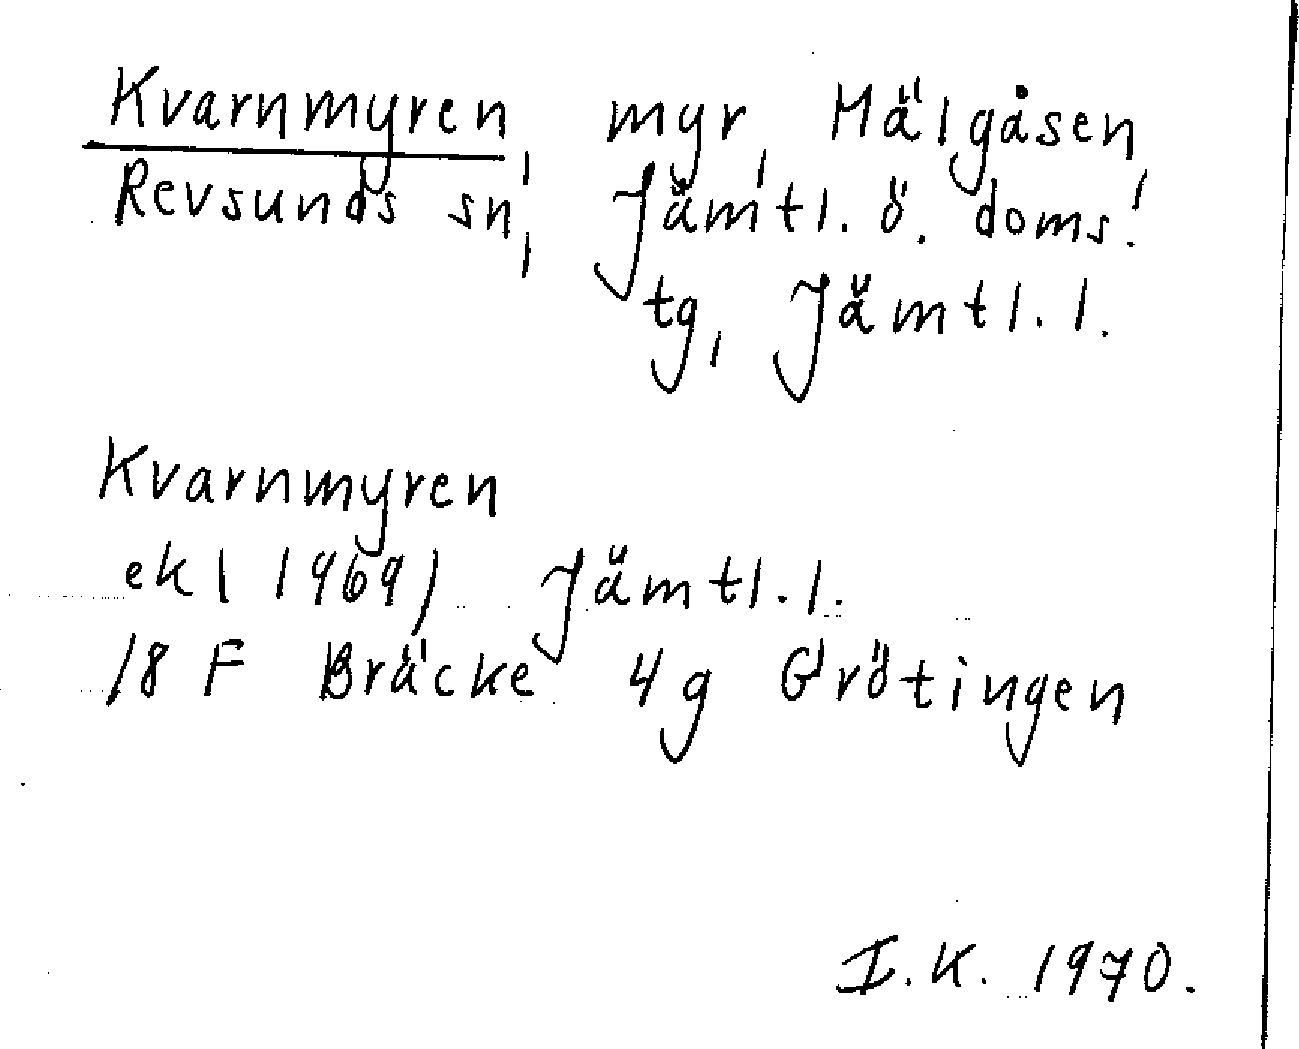 Kvarnmyren, myr, Mälgåsen,
Revsunds sn, Jämtl. ö. doms.
tg, Jämtl. l.
Kvarnmyren
ek (1969) Jämtl. l.
18 F Bräcke 4 g Grötingen
I.K. 1970.